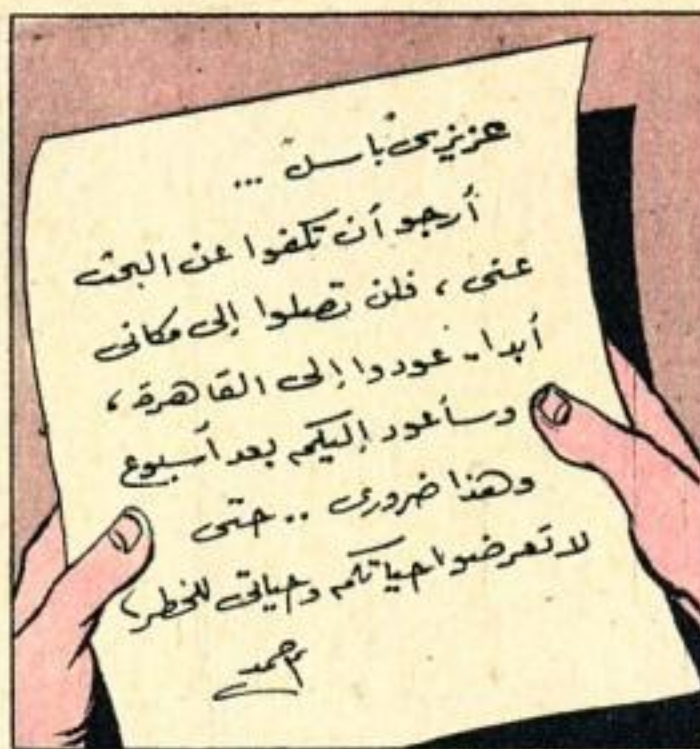 عزيزى "باسل" ...
أرجو أن تكفوا عن البحث
عنى ، فلن تصلوا إلى مكانى
أبدا.. عودوا إلى القاهرة ،
وسأعود إليكم بعد أسبوع
وهذا ضرورى .. حتى
لا تعرضوا حياتكم وحياتى للخطر ،